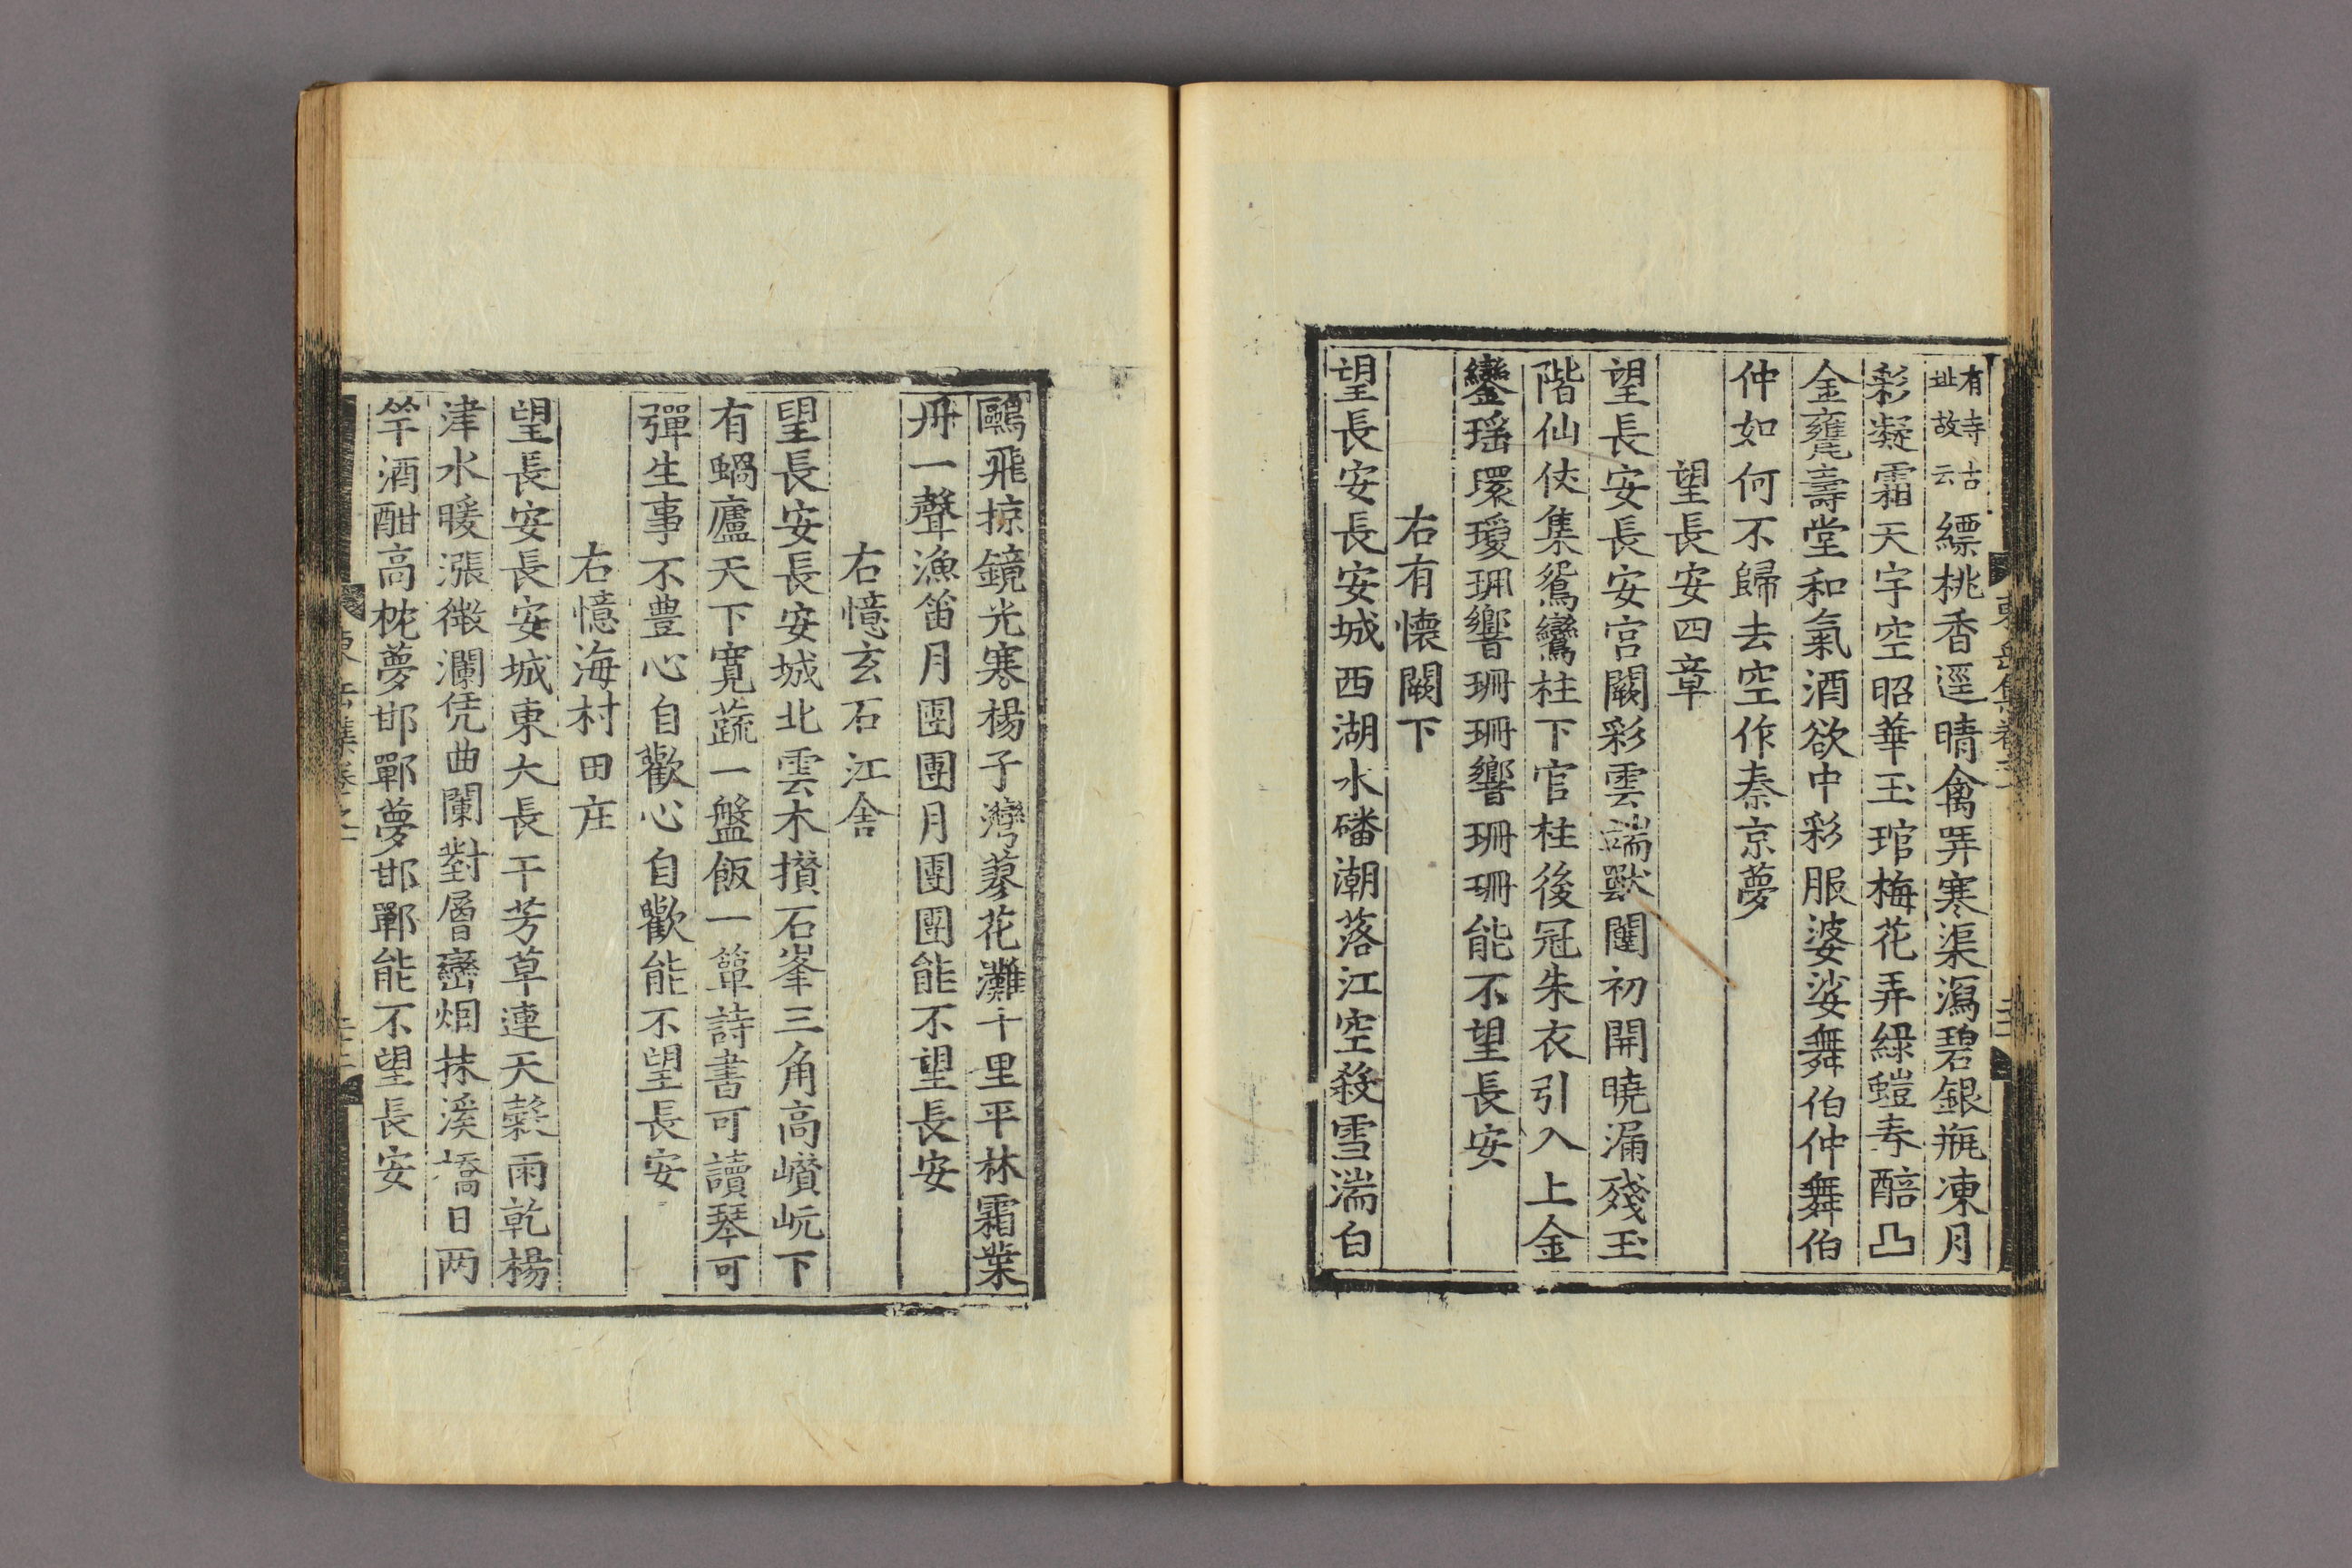 有寺古址故云縹桃香逕晴禽哢寒渠瀉碧銀瓶凍月
彩凝霜天宇空昭華玉琯梅花弄綠螘春醅凸
金甕壽堂和氣酒欲中彩服婆娑舞伯仲舞伯
仲如何不歸去空作秦京夢
望長安四章
望長安長安宮闕彩雲端獸闥初開曉漏殘玉
階仙仗集鴛鸞柱下官柱後冠朱衣引入上金
鑾瑶環瑷珮響珊珊響珊珊能不望長安
右有懷闕下
望長安長安城西湖水磻潮落江空殺雪湍白
鷗飛掠鏡光寒楊子灣蓼花灘十里平林霜葉
丹一聲漁笛月團團月團團能不望長安
右憶玄石江舍
望長安長安城北雲木攅石峯三角高巑岏下
有蝸廬天下寬蔬一盤飯一簞詩書可讀琴可
彈生事不豊心自歡心自歡能不望長安
右憶海村田庄
望長安長安城東大長干芳草連天縠雨乾楊
津水暖漲微瀾凭曲闌對層巒烟抹溪橋日两
竿酒酣高枕夢邯鄲夢邯鄲能不望長安